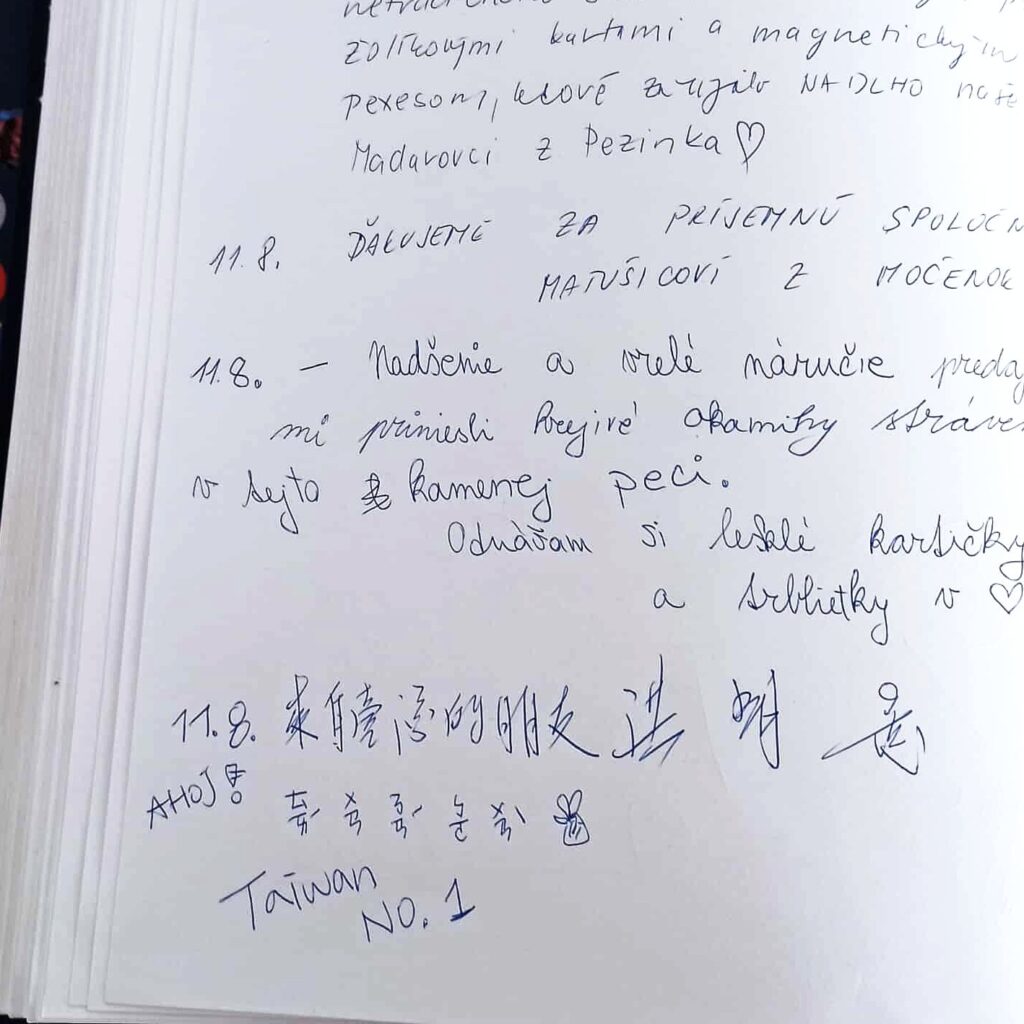 žolíkovými kartami a magnetickým
pexesom, ktoré zaujalo NADLHO naše
Madarovci z Pezinka ♡
11.8. ĎAKUJEME ZA PRÍJEMNÚ SPOLOČN
MATUŠICOVÍ Z MOČENOK
11.8. – Nadšenie a vrelé náručie predaj
mi priniesli hrejivé okamihy stráven
v tejto kamenej peci.
Odnášam si lesklé kartičky
a trblietky v ♡
11.8.來自臺灣的朋友 洪明
AHOJ!
Taiwan
NO. 1